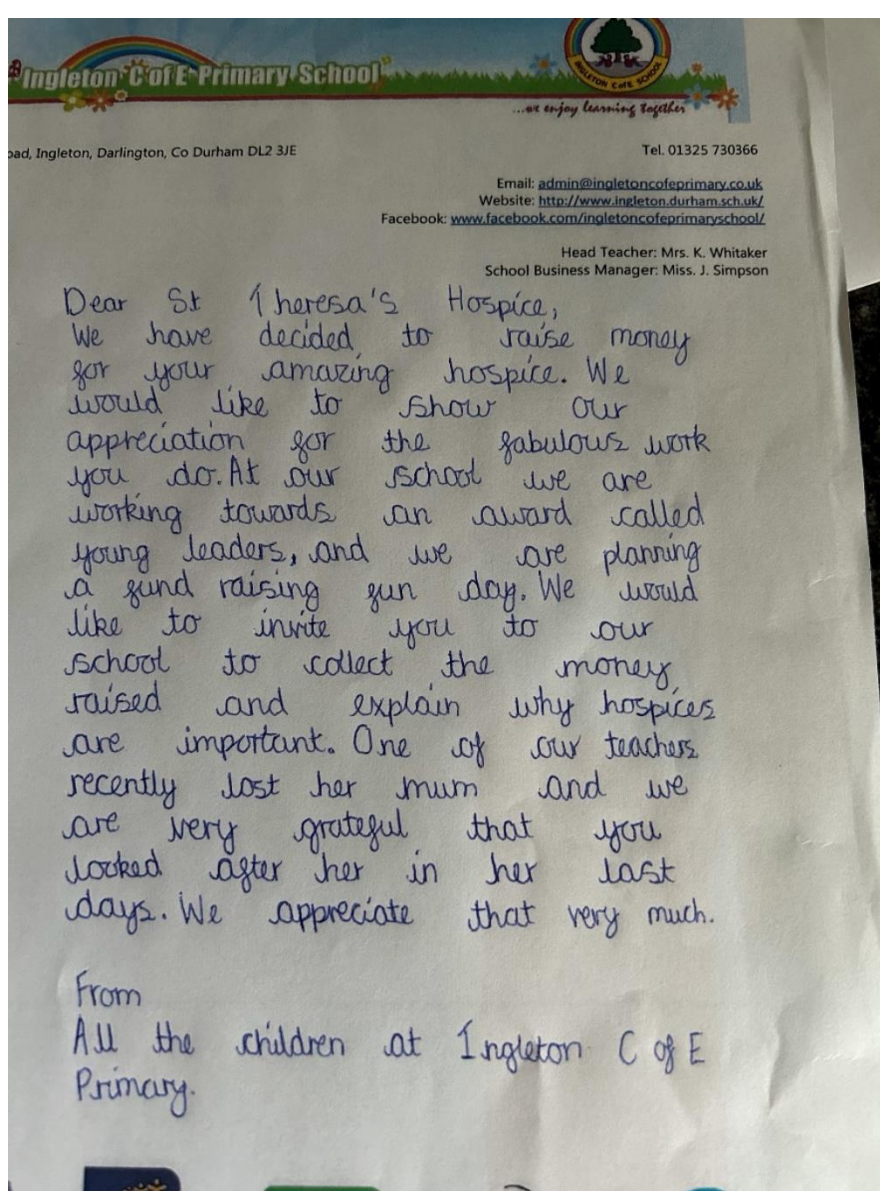 Ingleton C of E Primary School
INGLETON CofE SCHOOL
...we enjoy learning together
Ingleton, Darlington, Co Durham DL2 3JE
Tel. 01325 730366
Email: admin@ingletoncofeprimary.co.uk
Website: http://www.ingleton.durham.sch.uk/
Facebook: www.facebook.com/ingletoncofeprimaryschool/
Head Teacher: Mrs. K. Whitaker
School Business Manager: Miss. J. Simpson
Dear St Theresa's Hospice,
We have decided to raise money
for your amazing hospice. We
would like to show our
appreciation for the fabulous work
you do. At our school we are
working towards an award called
young leaders, and we are planning
a fund raising fun day. We would
like to invite you to our
school to collect the money
raised and explain why hospices
are important. One of our teachers
recently lost her mum and we
are very grateful that you
looked after her in her last
days. We appreciate that very much.
From
All the children at Ingleton C of E
Primary.